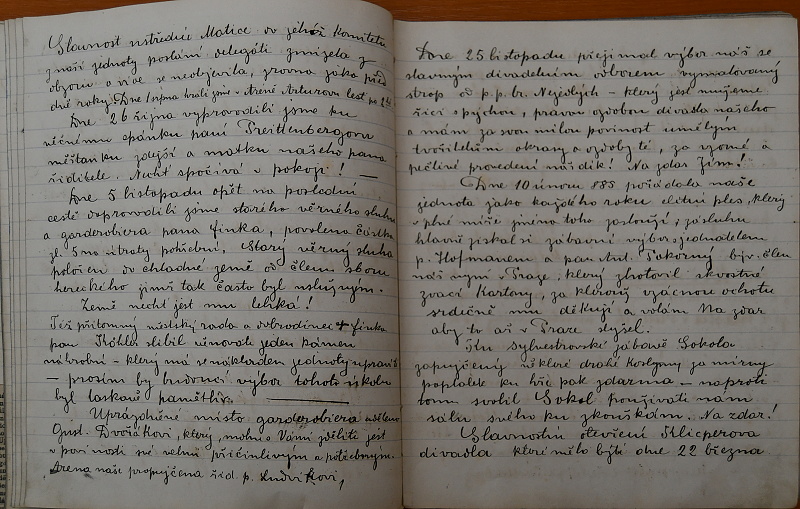 Slavnost ústřední Matice do jehož komitétu
z naší jednoty poslání delegáti zmizela z
obzoru a více se neobjevila, zrovna jako před
dvě roky. Dne 1 srpna hráli jsme v Aréně Arturovu lest po
Dne 26 října vyprovodili jsme ku
věčnému spánku paní Breitenbergovu
měšťanku zdejší a matku našeho pana
ředitele. Nechť spočívá v pokoji! —
Dne 5 listopadu opět na poslední
cestě doprovodili jsme starého věrného sluhu
a garderobiera pana Finka, povolena částka
zl. 5 na útraty pohřební, Starý věrný sluha
položen do chladné země od členů sboru
hereckého jimž tak často byl nslužným.
Země nechť jest mu lehká!
Též přítomný městský rada a dobrodinec + Finka
pan Köhler slíbil věnovati jeden kámen
náhrobní – který má se nákladem jednoty upraviti
— prosím by budoucí výbor tohoto úkolu
byl laskavě pamětliv. ———
Uprázdněné místo garderobiera uděleno
Gust. Dvořákovi, který, možno Vámi sděliti jest
v povinosti své velmi přičinlivým a potřebným.
Arena naše propujčena řed. p. Ludvíkovi,
Dne 25 listopadu přejímal výbor náš se
slavným divadelním odborem vymalovaný
strop od p.p. br. Nejedlých – který jest můžeme
říci s pýchou, pravou ozdobou divadla našeho
a mám za svou milou povinost umělým
tvořitelům okrasy a ozdoby té, za vzorné a
pečlivé provedení náš dík! Na zdar Jim!
Dne 10 únoru 885 pořádala naše
jednota jako každého roku elitní ples, který
v plné míře jména toho zasloužil; zásluhu
hlavně získal si zábavní výbor s jednatelem
p. Hofmanem a pan stut. Pokorný býv. člen
náš nyní v Praze, který zhotovil skvostné
zvací Kartony, za kterouž vzácnou ochotu
srdečně mu děkuji a volám Na zdar
aby to až v Praze slyšel.
Ku Sylvestrovské zábavě Sokola
zapujčeny některé drahé Kostymy za mírný
poplatek ku hře pak zdarma – naproti
tomu svolil Sokol používati nám
sálu svého ku zkouškám. Na zdar!
Slavnostní otevření Klicperova
divadla které mělo býti dne 22 března